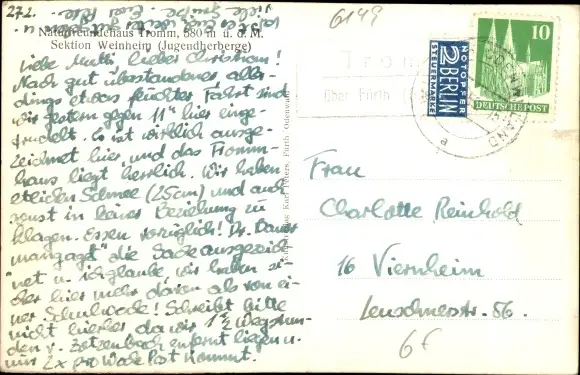 272.
6149
Naturfreundehaus Tromm, 580 m ü. d. M.
Sektion Weinheim (Jugendherberge)
Liebe Mutti, lieber Christian!
Nach gut überstandener, aller-
dings etwas feuchter Fahrt sind
wir gestern gegen 11 h hier einge-
trudelt. Es ist wirklich ausge-
zeichnet hier, und das Tromm-
haus liegt herrlich. Wir haben
etlichen Schnee (25cm) und auch
sonst in keiner Beziehung zu
klagen. Essen vorzüglich! Dr. Bauer
"managt" die Sache ausgezeich-
net u. ich glaube, wir haben si-
cher hier mehr davon als von ei-
ner Schulwoche! Schreibt bitte
nicht hierher da wir 1 1/2 Wegstun-
den v. Zotzenbach entfernt liegen u.
nur 2x pro Woche Post kommt.
Karl Peters, Fürth Odenwald
Tromm
über Fürth
NOTOPFER
2 BERLIN
STEUERMARKE
10
DEUTSCHE POST
a
Frau
Charlotte Reinhold
16 Viernheim
Leuschnerstr. 56.
6f